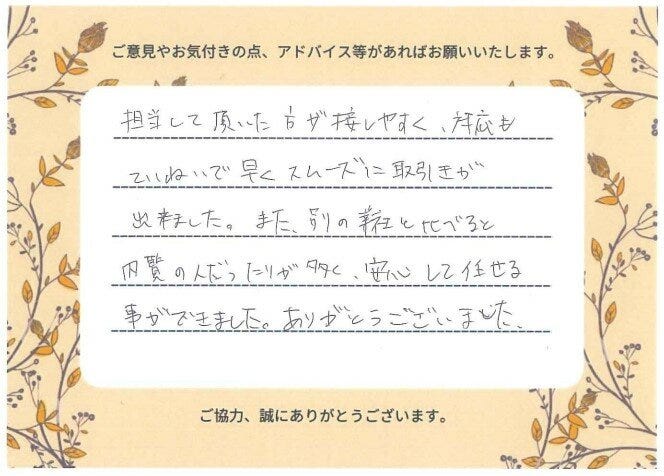 ご意見やお気付きの点、アドバイス等があればお願いいたします。
担当して頂いた方が接しやすく、対応も
ていねいで早くスムーズに取引きが
出来ました。また、別の業社と比べると
内覧の人だったりが多く、安心して任せる
事ができました。ありがとうございました。
ご協力、誠にありがとうございます。